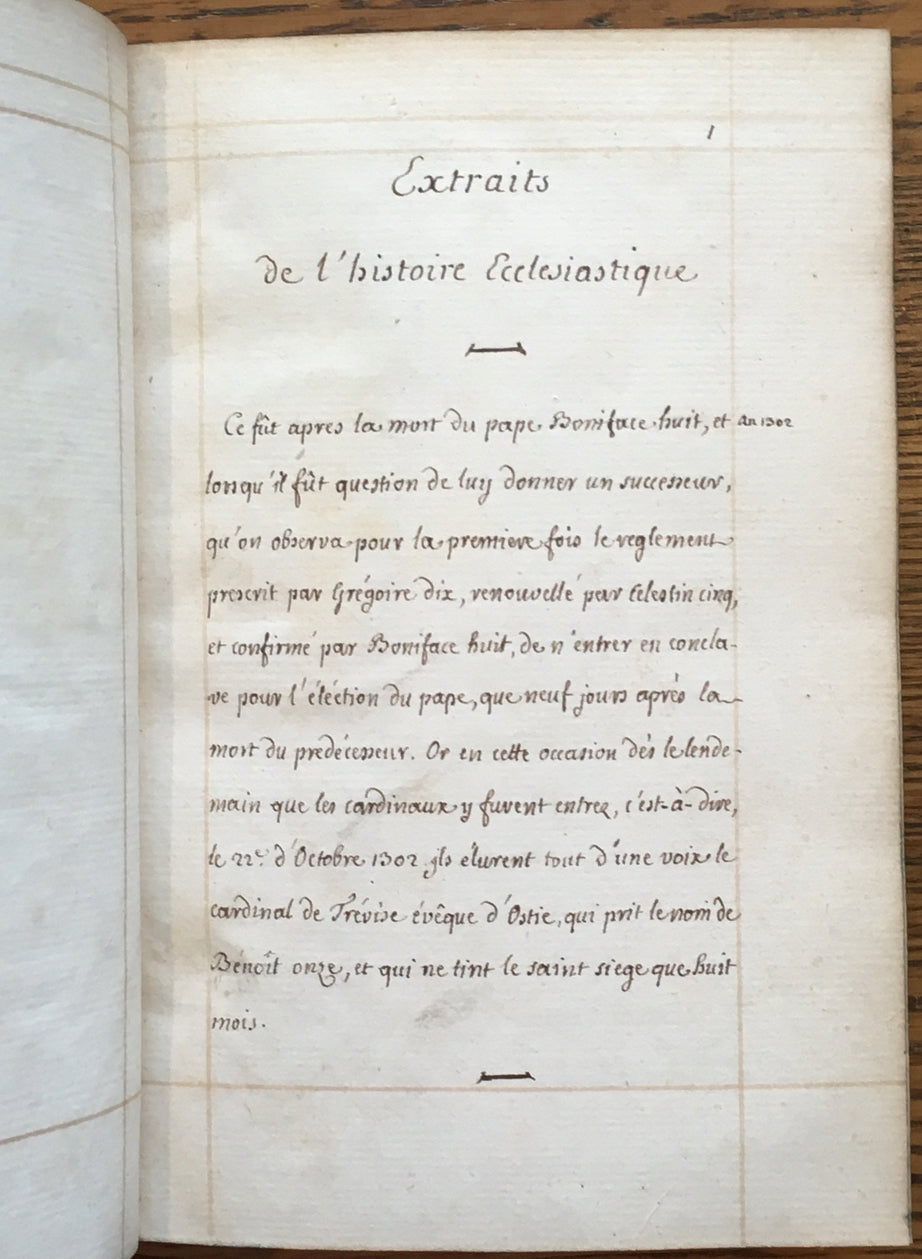 1
Extraits
de l'histoire Ecclesiastique
Ce fût apres la mort du pape Boniface huit, et an 1302
lorsqu'il fût question de luy donner un successeur,
qu'on observa pour la premiere fois le reglement
prescrit par Grégoire dix, renouvellé par Celestin cinq,
et confirmé par Boniface huit, de n'entrer en concla-
ve pour l'éléction du pape, que neuf jours après la
mort du predécesseur. Or en cette occasion dès le lende-
main que les cardinaux y furent entrez, c'est-à-dire,
le 22e. d'Octobre 1302 ils élurent tout d'une voix le
cardinal de Trévise évêque d'Ostie, qui prit le nom de
Bénoît onze, et qui ne tint le saint siege que huit
mois.